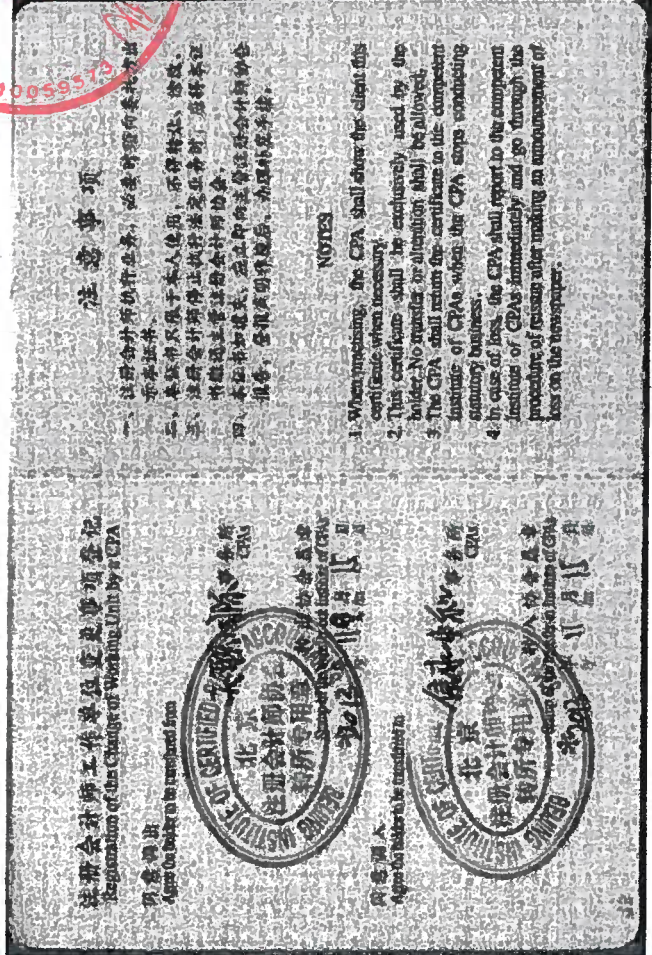 注册会计师工作单位变更事项登记
Registration of the Change of Working Unit by a CPA
同意调出
Agree the holder to be transferred from
事务所
CPAs
北京
注册会计师协会
转所专用章
BEIJING INSTITUTE OF CERTIFIED ACCOUN
2012
月 15 日
同意调入
Agree the holder to be transferred to
事务所
CPAs
北京
注册会计师协会
转所专用章
BEIJING INSTITUTE OF CERTIFIED ACCOUN
2012
11 月 15 日
注意事项
一、注册会计师执行业务，必要时须向委托方出
示本证书。
二、本证书只限于本人使用，不得转让、涂改。
三、注册会计师停止执行法定业务时，应将本证
书缴还主管注册会计师协会。
四、本证书如遗失，应立即向主管注册会计师协会
报告，登报声明作废后，办理补发手续。
NOTES
1. When practising, the CPA shall show the client this
certificate when necessary.
2. This certificate shall be exclusively used by the
holder. No transfer or alteration shall be allowed.
3. The CPA shall return the certificate to the competent
Institute of CPAs when the CPA stops conducting
statutory business.
4. In case of loss, the CPA shall report to the competent
Institute of CPAs immediately and go through the
procedure of reissue after making an announcement of
loss on the newspaper.
0059573